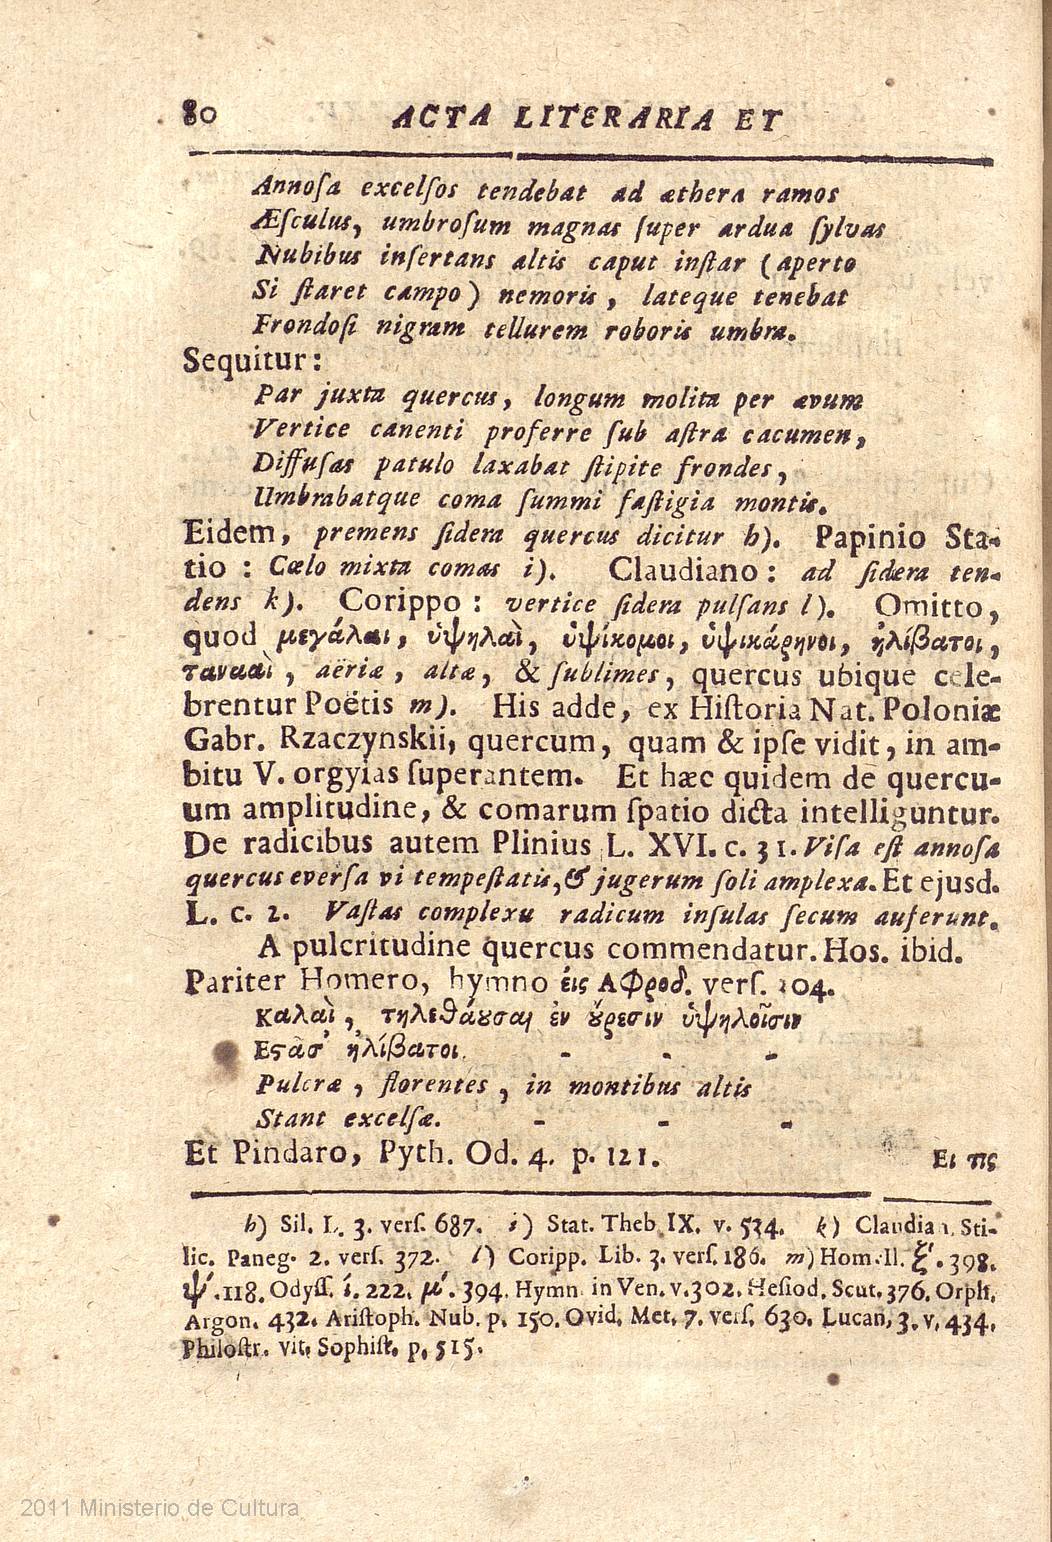 80 ACTA LITERARIA ET
Annoſa excelſos tendebat ad æthera ramos
Æſculus, umbroſum magnas ſuper ardua ſylvas
Nubibus inſertans altis caput inſtar (aperto
Si ſtaret campo) nemoris, lateque tenebat
Frondoſi nigram tellurem roboris umbra.
Sequitur:
Par juxta quercus, longum molita per ævum
Vertice canenti proferre ſub aſtra cacumen,
Diffuſas patulo laxabat ſtipite frondes,
Umbrabatque coma ſummi faſtigia montis.
Eidem, premens ſidera quercus dicitur h). Papinio Sta-
tio: Cœlo mixta comas i). Claudiano: ad ſidera ten-
dens k). Corippo: vertice ſidera pulſans l). Omitto,
quod μεγάλαι, ὑψηλαὶ, ὑψίκομοι, ὑψικάρηνοι, ἠλίβατοι,
τανααὶ, aëriæ, altæ, & ſublimes, quercus ubique cele-
brentur Poëtis m). His adde, ex Hiſtoria Nat. Poloniæ
Gabr. Rzaczynskii, quercum, quam & ipſe vidit, in am-
bitu V. orgyias ſuperantem. Et hæc quidem de quercu-
um amplitudine, & comarum ſpatio dicta intelliguntur.
De radicibus autem Plinius L. XVI. c. 31. Viſa eſt annoſa
quercus everſa vi tempeſtatis, & jugerum ſoli amplexa. Et ejusd.
L. c. 2. Vaſtas complexu radicum inſulas ſecum auferunt.
A pulcritudine quercus commendatur. Hos. ibid.
Pariter Homero, hymno εἰς ΑΦροδ. verſ. 204.
Καλαὶ, τηλεθάουσαι ἐν οὔρεσιν ὑψηλοῖσιν
Εςᾶσ' ἠλίβατοι. - - -
Pulcræ, florentes, in montibus altis
Stant excelſæ. - - -
Et Pindaro, Pyth. Od. 4. p. 121. Ει τις
h) Sil. L. 3. verſ. 687. i) Stat. Theb. IX. v. 534. k) Claudian. Sti-
lic. Paneg. 2. verſ. 372. l) Coripp. Lib. 3. verſ. 186. m) Hom. Il. ξ'. 398.
ψ'. 118. Odyſſ. ί. 222. μ'. 394. Hymn. in Ven. v. 302. Heſiod. Scut. 376. Orph.
Argon. 432. Ariſtoph. Nub. p. 150. Ovid. Met. 7. verſ. 630. Lucan. 3. v. 434.
Philoſtr. vit. Sophiſt. p. 515.
2011 Ministerio de Cultura